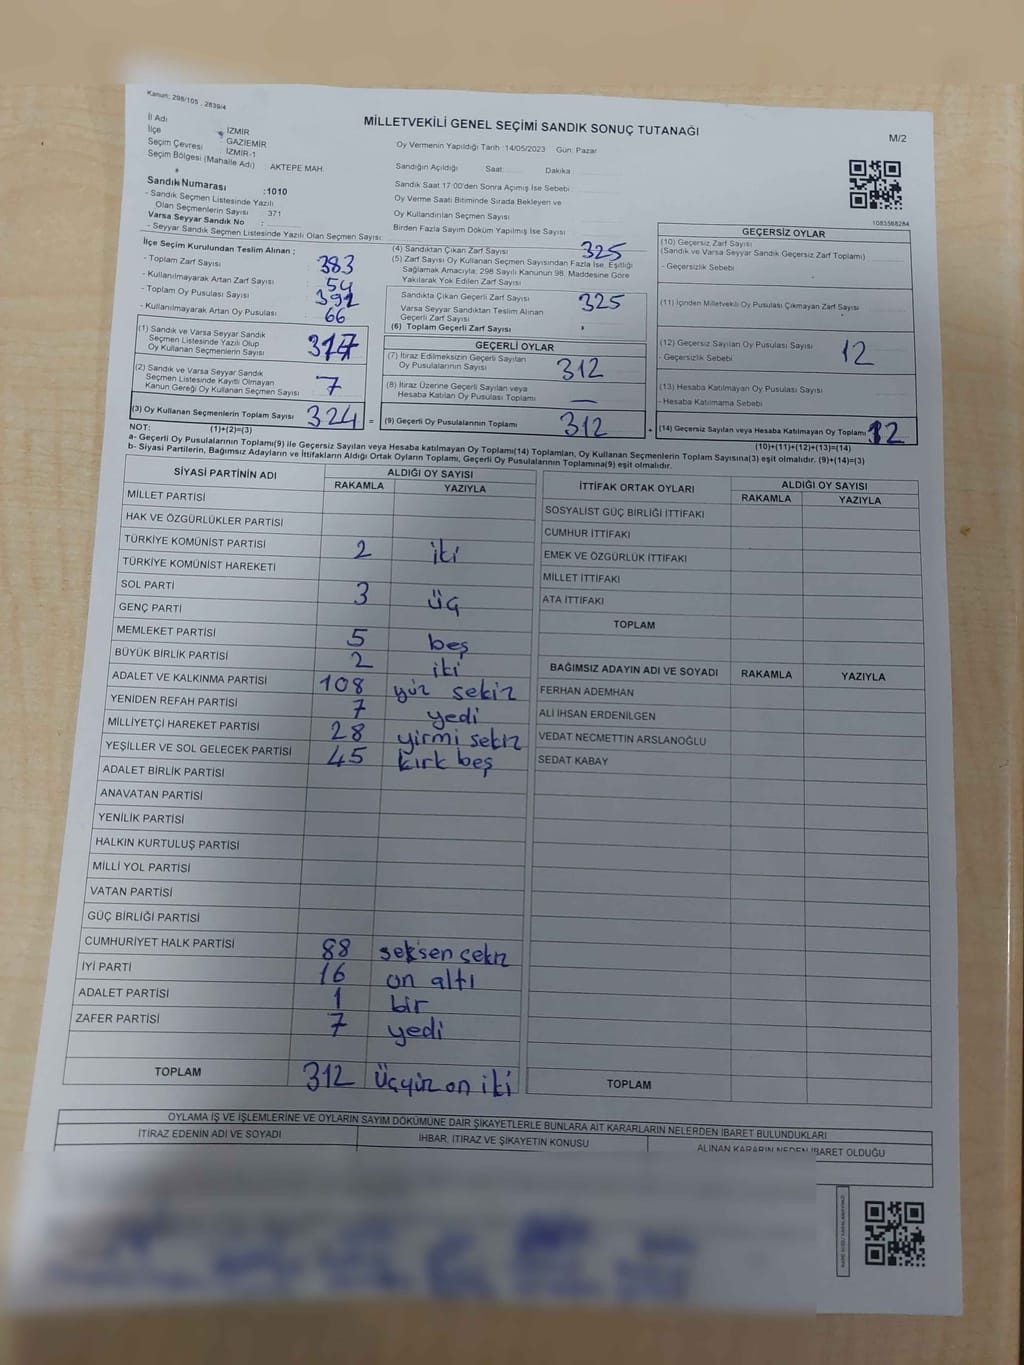 Kanun: 298/105 , 2839/4
MİLLETVEKİLİ GENEL SEÇİMİ SANDIK SONUÇ TUTANAĞI
M/2
İl Adı : İZMİR
İlçe : GAZİEMİR
Seçim Çevresi : İZMİR-1
Seçim Bölgesi (Mahalle Adı) : AKTEPE MAH.
Sandık Numarası :1010
- Sandık Seçmen Listesinde Yazılı
Olan Seçmenlerin Sayısı : 371
Varsa Seyyar Sandık No :
- Seyyar Sandık Seçmen Listesinde Yazılı Olan Seçmen Sayısı:
Oy Vermenin Yapıldığı Tarih :14/05/2023 Gün: Pazar
Sandığın Açıldığı Saat: Dakika:
Sandık Saat 17:00'den Sonra Açımış İse Sebebi :
Oy Verme Saati Bitiminde Sırada Bekleyen ve
Oy Kullandırılan Seçmen Sayısı
Birden Fazla Sayım Döküm Yapılmış İse Sayısı :
1083568284
İlçe Seçim Kurulundan Teslim Alınan :
- Toplam Zarf Sayısı 383
- Kullanılmayarak Artan Zarf Sayısı 54
- Toplam Oy Pusulası Sayısı 391
- Kullanılmayarak Artan Oy Pusulası 66
(1) Sandık ve Varsa Seyyar Sandık
Seçmen Listesinde Yazılı Olup
Oy Kullanan Seçmenlerin Sayısı 317
(2) Sandık ve Varsa Seyyar Sandık
Seçmen Listesinde Kayıtlı Olmayan
Kanun Gereği Oy Kullanan Seçmen Sayısı 7
(3) Oy Kullanan Seçmenlerin Toplam Sayısı 324 =
(1)+(2)=(3)
(4) Sandıktan Çıkan Zarf Sayısı 325
(5) Zarf Sayısı Oy Kullanan Seçmen Sayısından Fazla İse, Eşitliği
Sağlamak Amacıyla; 298 Sayılı Kanunun 98. Maddesine Göre
Yakılarak Yok Edilen Zarf Sayısı
Sandıkta Çıkan Geçerli Zarf Sayısı 325
Varsa Seyyar Sandıktan Teslim Alınan
Geçerli Zarf Sayısı
(6) Toplam Geçerli Zarf Sayısı
GEÇERLİ OYLAR
(7) İtiraz Edilmeksizin Geçerli Sayılan
Oy Pusulalarının Sayısı 312
(8) İtiraz Üzerine Geçerli Sayılan veya
Hesaba Katılan Oy Pusulası Toplamı —
(9) Geçerli Oy Pusulalarının Toplamı 312 +
GEÇERSİZ OYLAR
(10) Geçersiz Zarf Sayısı
(Sandık ve Varsa Seyyar Sandık Geçersiz Zarf Toplamı)
- Geçersizlik Sebebi
(11) İçinden Milletvekili Oy Pusulası Çıkmayan Zarf Sayısı
(12) Geçersiz Sayılan Oy Pusulası Sayısı 12
- Geçersizlik Sebebi
(13) Hesaba Katılmayan Oy Pusulası Sayısı
- Hesaba Katılmama Sebebi
(14) Geçersiz Sayılan veya Hesaba Katılmayan Oy Toplamı 12
(10)+(11)+(12)+(13)=(14)
NOT:
a- Geçerli Oy Pusulalarının Toplamı(9) ile Geçersiz Sayılan veya Hesaba katılmayan Oy Toplamı(14) Toplamları, Oy Kullanan Seçmenlerin Toplam Sayısına(3) eşit olmalıdır. (9)+(14)=(3)
b- Siyasi Partilerin, Bağımsız Adayların ve İttifakların Aldığı Ortak Oyların Toplamı, Geçerli Oy Pusulalarının Toplamına(9) eşit olmalıdır.
SİYASİ PARTİNİN ADI ALDIĞI OY SAYISI
RAKAMLA YAZIYLA
MİLLET PARTİSİ
HAK VE ÖZGÜRLÜKLER PARTİSİ
TÜRKİYE KOMÜNİST PARTİSİ 2 iki
TÜRKİYE KOMÜNİST HAREKETİ
SOL PARTİ 3 üç
GENÇ PARTİ
MEMLEKET PARTİSİ 5 beş
BÜYÜK BİRLİK PARTİSİ 2 iki
ADALET VE KALKINMA PARTİSİ 108 yüz sekiz
YENİDEN REFAH PARTİSİ 7 yedi
MİLLİYETÇİ HAREKET PARTİSİ 28 yirmi sekiz
YEŞİLLER VE SOL GELECEK PARTİSİ 45 kırk beş
ADALET BİRLİK PARTİSİ
ANAVATAN PARTİSİ
YENİLİK PARTİSİ
HALKIN KURTULUŞ PARTİSİ
MİLLİ YOL PARTİSİ
VATAN PARTİSİ
GÜÇ BİRLİĞİ PARTİSİ
CUMHURİYET HALK PARTİSİ 88 seksen sekiz
İYİ PARTİ 16 on altı
ADALET PARTİSİ 1 bir
ZAFER PARTİSİ 7 yedi
TOPLAM 312 Üçyüz on iki
İTTİFAK ORTAK OYLARI ALDIĞI OY SAYISI
RAKAMLA YAZIYLA
SOSYALİST GÜÇ BİRLİĞİ İTTİFAKI
CUMHUR İTTİFAKI
EMEK VE ÖZGÜRLÜK İTTİFAKI
MİLLET İTTİFAKI
ATA İTTİFAKI
TOPLAM
BAĞIMSIZ ADAYIN ADI VE SOYADI RAKAMLA YAZIYLA
FERHAN ADEMHAN
ALİ İHSAN ERDENİLGEN
VEDAT NECMETTİN ARSLANOĞLU
SEDAT KABAY
TOPLAM
OYLAMA İŞ VE İŞLEMLERİNE VE OYLARIN SAYIM DÖKÜMÜNE DAİR ŞİKAYETLERLE BUNLARA AİT KARARLARIN NELERDEN İBARET BULUNDUKLARI
İTİRAZ EDENİN ADI VE SOYADI İHBAR, İTİRAZ VE ŞİKAYETİN KONUSU ALINAN KARARIN NEDEN İBARET OLDUĞU